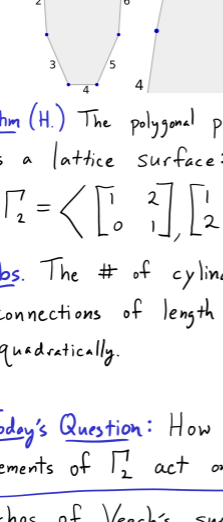 2 6
3 5
4 4
hm (H.) The polygonal p
s a lattice surface:
Γ₂ = < [1 2 0 1], [1 2
bs. The # of cylin
connections of length
quadratically.
oday's Question: How
ements of Γ₂ act o
hes of Veech's su